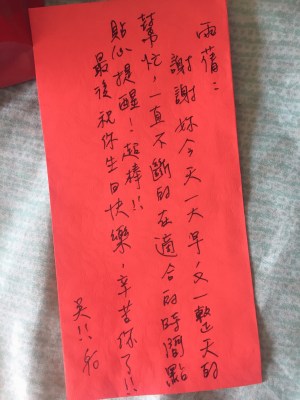 雨蒨：
謝謝妳今天一大早,又一整天的
幫忙,一直不斷的在適合的時間點
貼心提醒！超棒!!
最後祝你生日快樂,辛苦你了!!